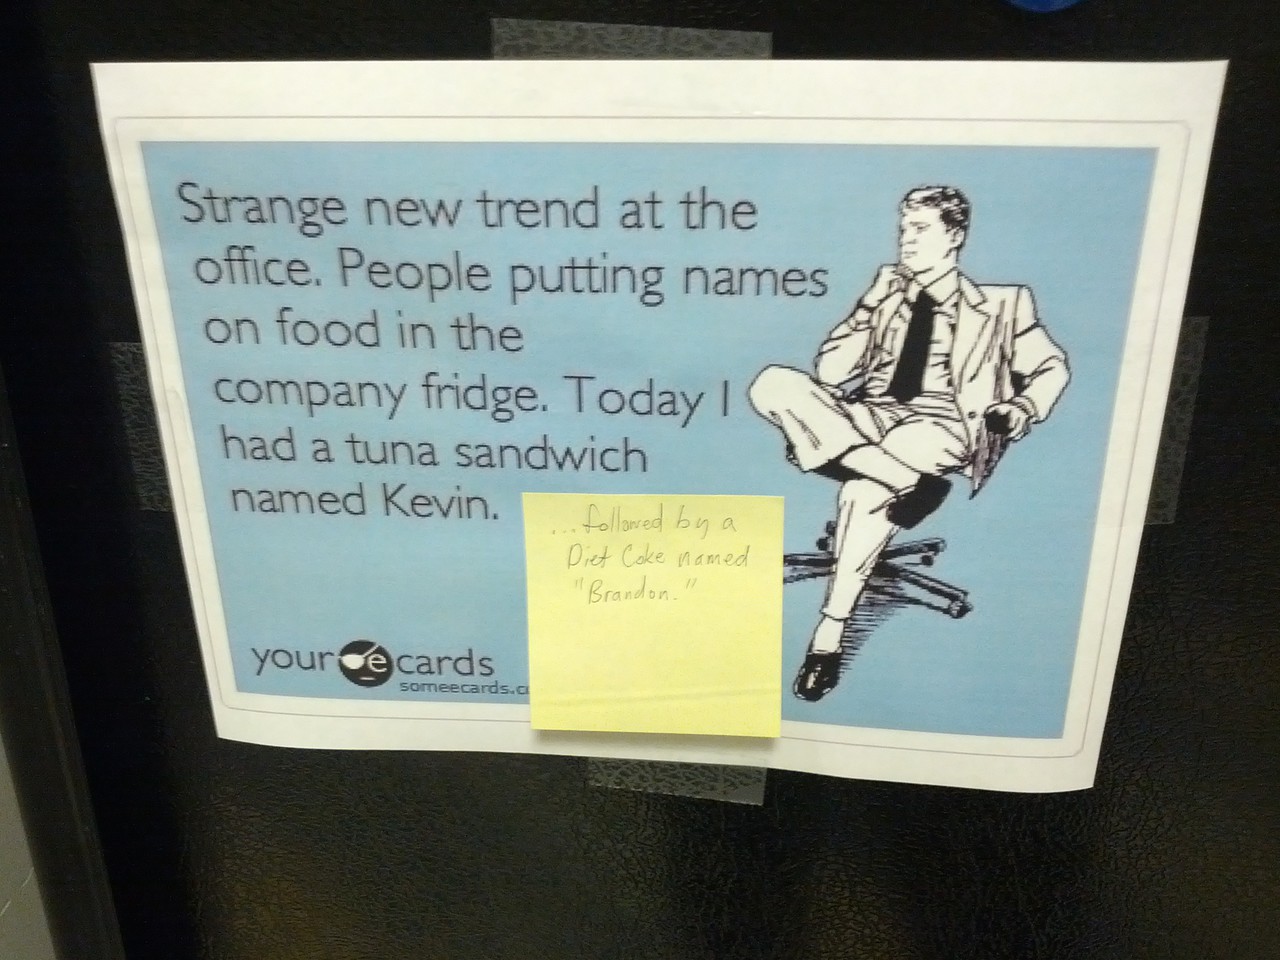 Strange new trend at the
office. People putting names
on food in the
company fridge. Today I
had a tuna sandwich
named Kevin.
...followed by a
Diet Coke named
"Brandon."
your e cards
someecards.c